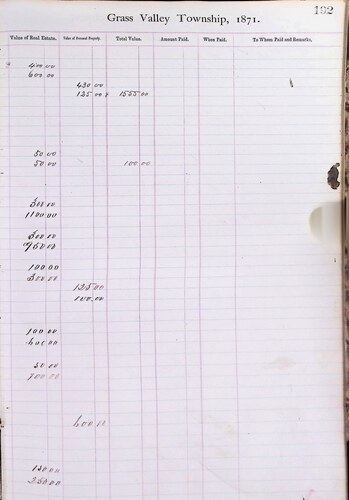 192
Grass Valley Township, 1871.
Value of Real Estate. Value of Personal Property. Total Value. Amount Paid. When Paid. To Whom Paid and Remarks.
400 00
600 00
430 00
125 00 1555 00
50 00
50 00 100 00
300 00
1100 00
300 00
950 00
100 00
300 00
125 00
100 00
100 00
600 00
50 00
700 00
600 00
150 00
350 00